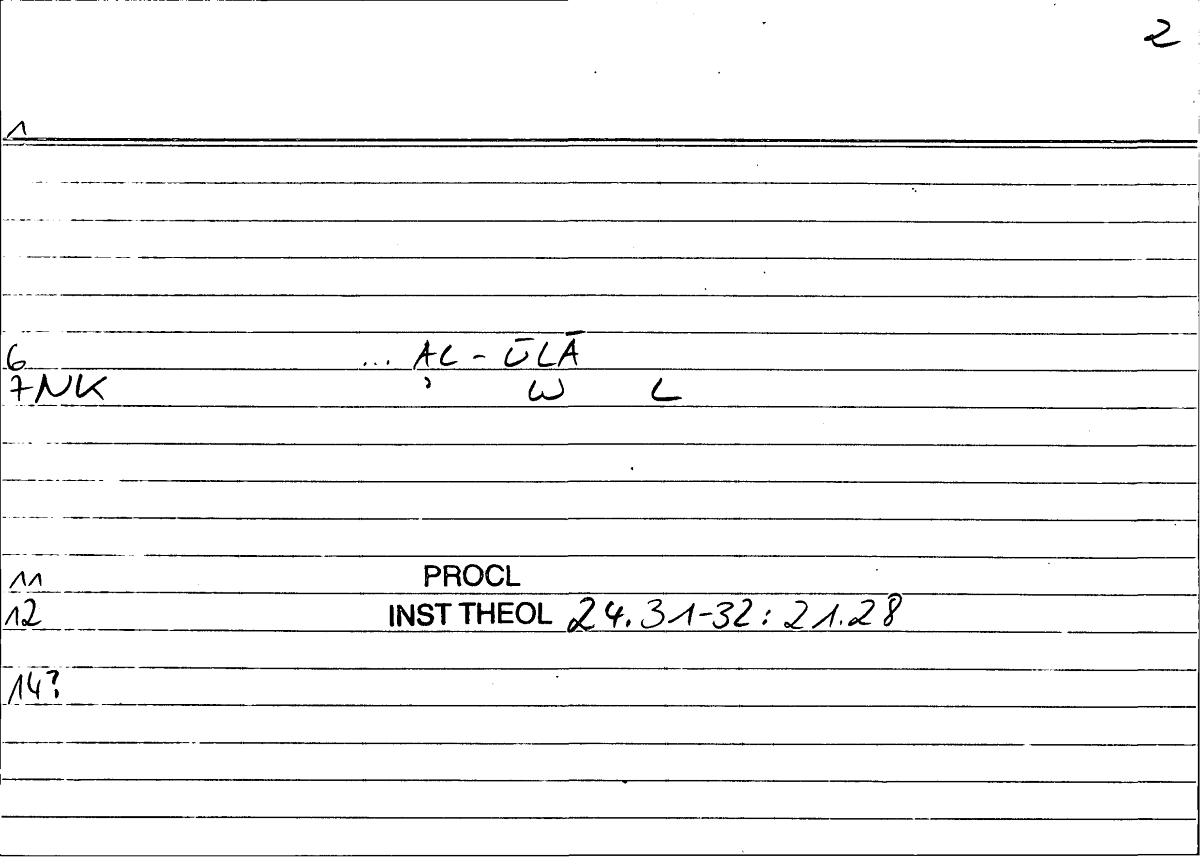 2
1
6 ... AL - ŪLĀ
7NK ʾ W L
11 PROCL
12 INST THEOL 24.31-32: 21.28
14?